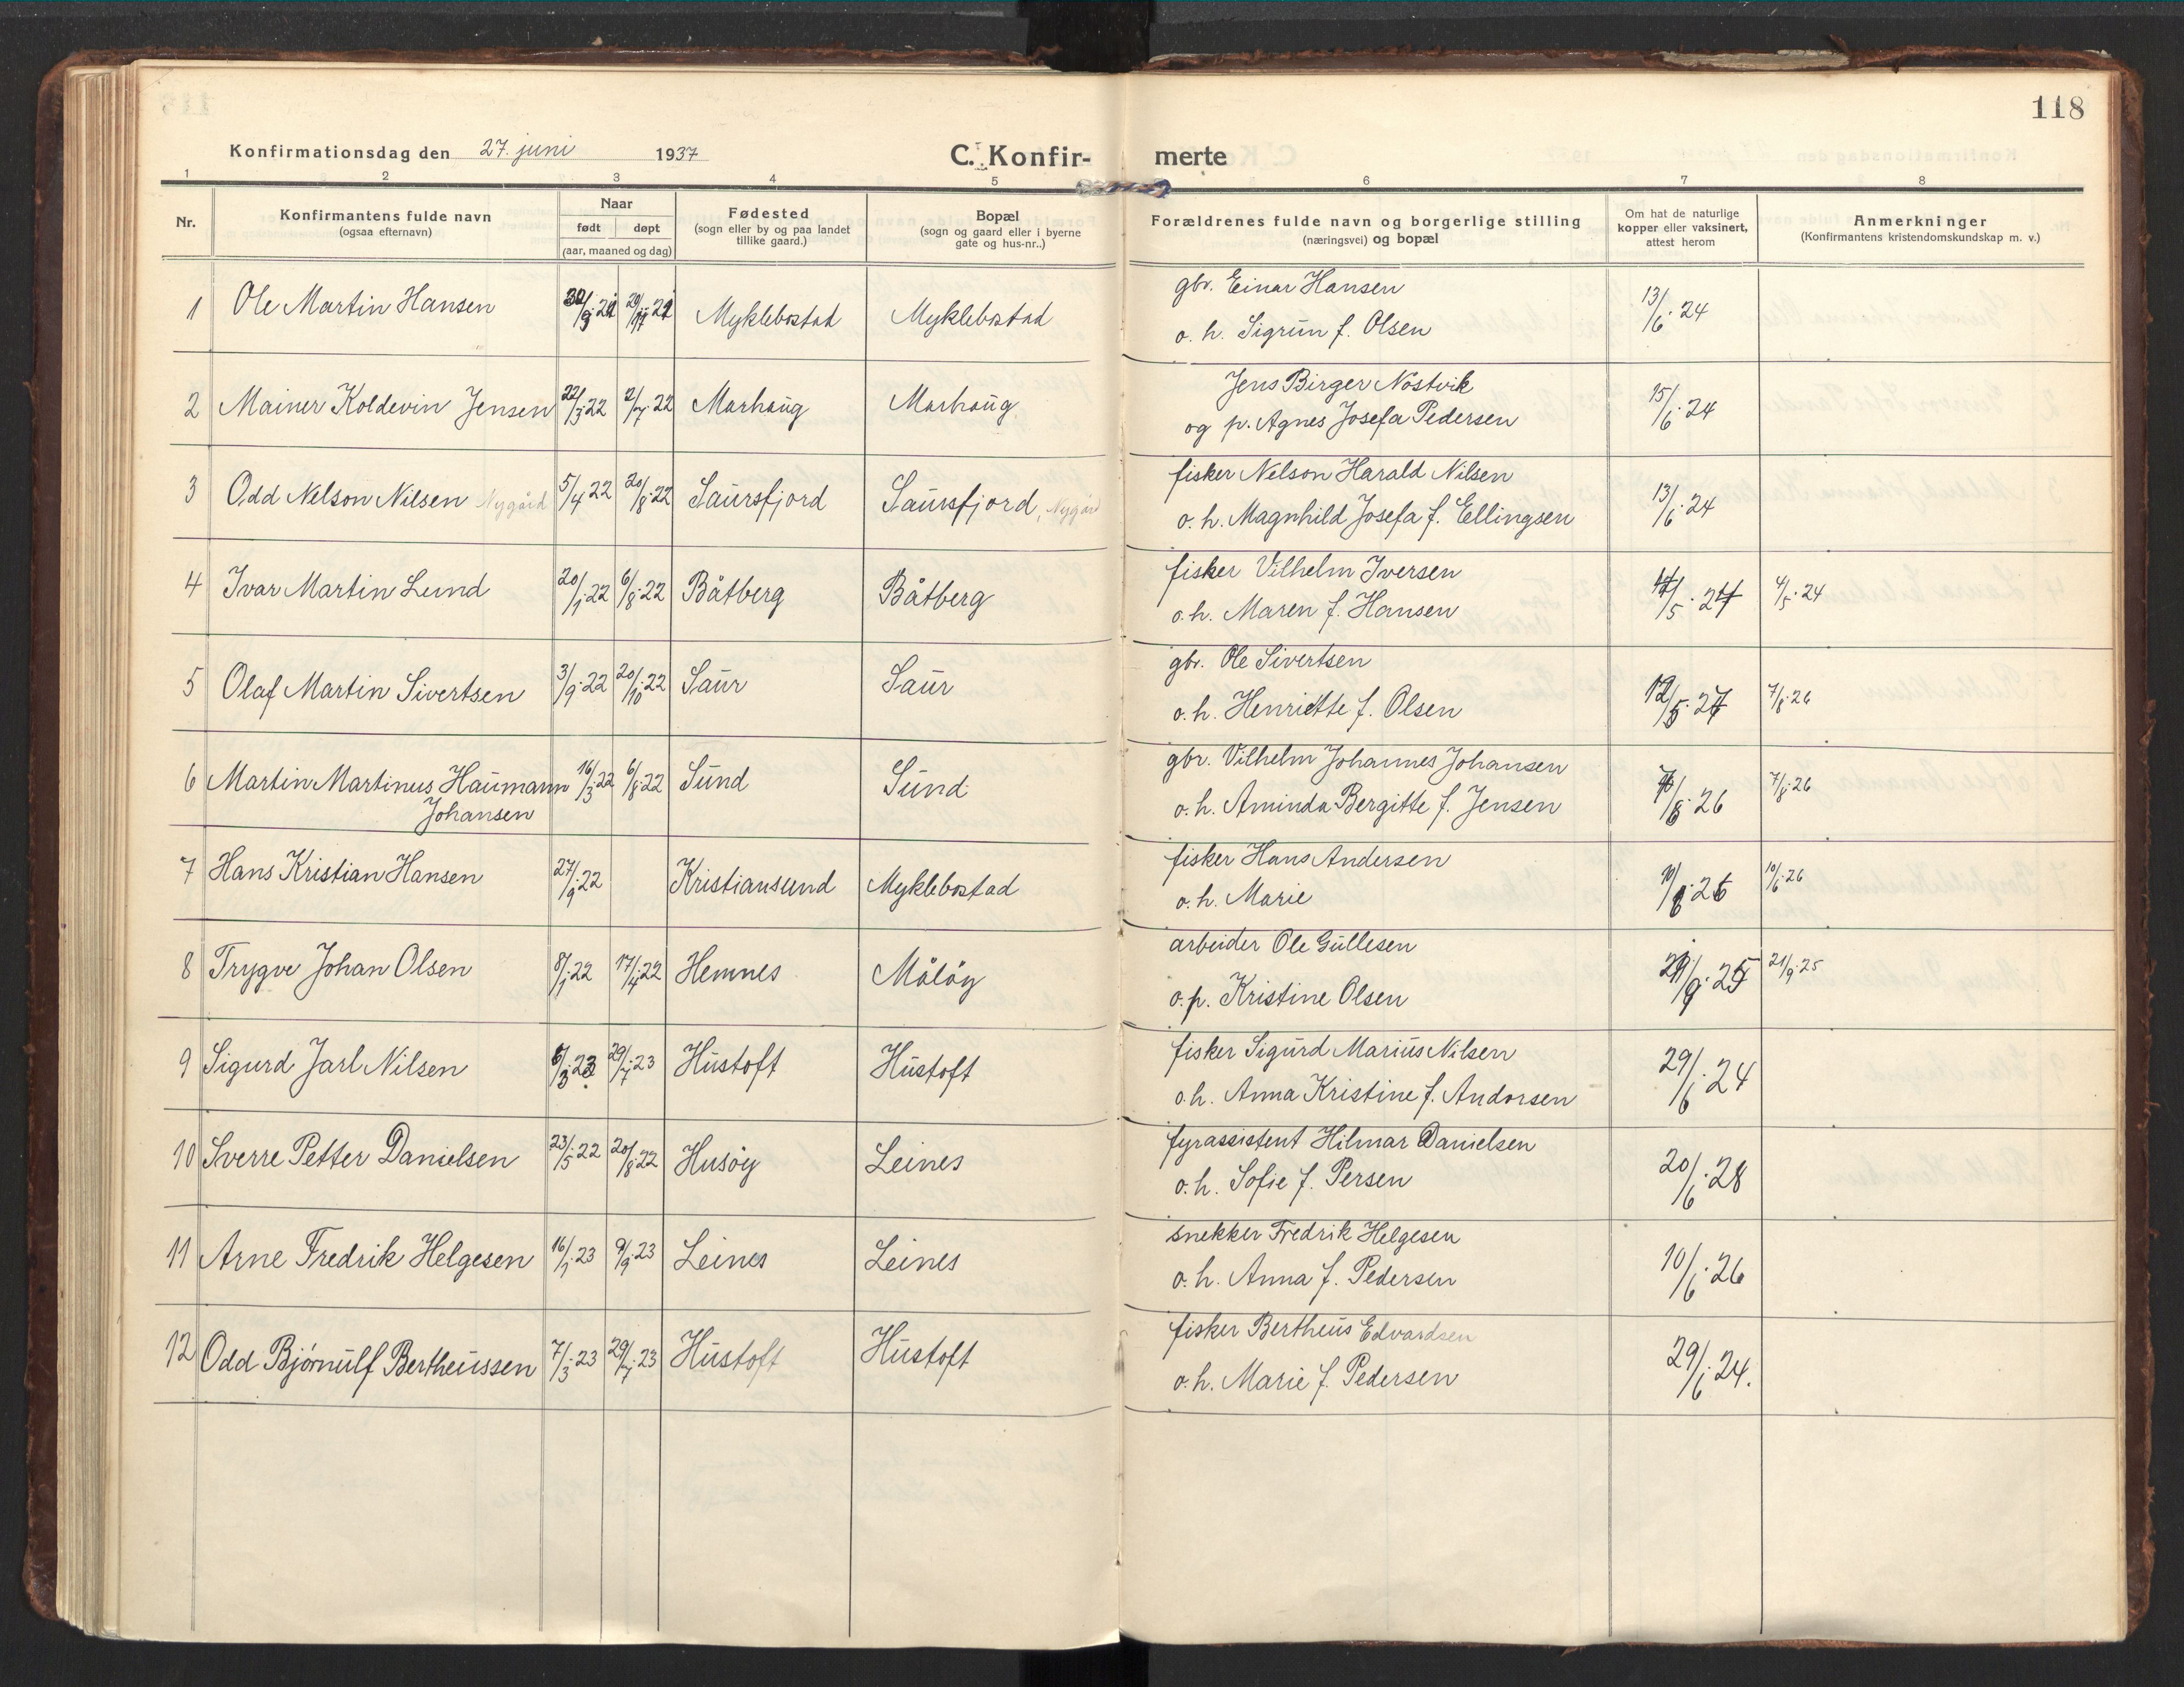 118
Konfirmationsdag den 27. juni 1937 C. Konfir- merte
1 2 3 4 5 6 7 8
Nr. Konfirmantens fulde navn (ogsaa efternavn) Naar født døpt (aar, maaned og dag) Fødested (sogn eller by og paa landet tillike gaard.) Bopæl (sogn og gaard eller i byerne gate og hus-nr..) Forældrenes fulde navn og borgerlige stilling (næringsvei) og bopæl Om hat de naturlige kopper eller vaksinert, attest herom Anmerkninger (Konfirmantens kristendomskundskap m. v.)
1 Ole Martin Hansen Myklebostad Myklebostad gbr. Einar Hansen 13/6.24
o. h. Sigrun f. Olsen
2 Mainer Koldevin Jensen 22/3.22 2/7.22 Marhaug Marhaug Jens Birger Nostvik 15/6.24
og p. Agnes Josefa Pedersen
3 Odd Nelson Nilsen Nygård 5/4 22 20/8.22 Saursfjord Saursfjord, Nygård fisker Nelson Harald Nilsen 13/6.24
o. h. Magnhild Josefa f. Ellingsen
4 Ivar Martin Lund 20/1.22 6/8.22 Båtberg Båtberg fisker Vilhelm Iversen 4/5.24
o. h. Maren f. Hansen
5 Olaf Martin Sivertsen 3/9.22 20/10.22 Saur Saur gbr. Ole Sivertsen 7/6.26
o. h. Henriette f. Olsen
6 Martin Martinus Haumann 16/3.22 6/8.22 Sund Sund gbr. Vilhelm Johannes Johansen 7/6.26
Johansen o. h. Aminda Bergitte f. Jensen
7 Hans Kristian Hansen 27/9.22 Kristiansund Myklebostad fisker Hans Andersen 10/6.26
o. h. Marie
8 Trygve Johan Olsen 8/1.22 17/4.22 Hemnes Måløy arbeider Ole Gullesen 21/9.25
o. p. Kristine Olsen
9 Sigurd Jarl Nilsen 29/7.23 Hustoft Hustoft fisker Sigurd Marius Nilsen 29/6.24
o. h. Anna Kristine f. Andorsen
10 Sverre Petter Danielsen 23/5.22 20/8.22 Husøy Leines fyrassistent Hilmar Danielsen 20/6.28
o. h. Sofie f. Persen
11 Arne Fredrik Helgesen 16/1.23 9/9.23 Leines Leines snekker Fredrik Helgesen 10/6.26
o. h. Anna f. Pedersen
12 Odd Bjørnulf Bertheussen 7/3.23 29/7.23 Hustoft Hustoft fisker Bertheus Edvardsen 29/6.24.
o. h. Marie f. Pedersen